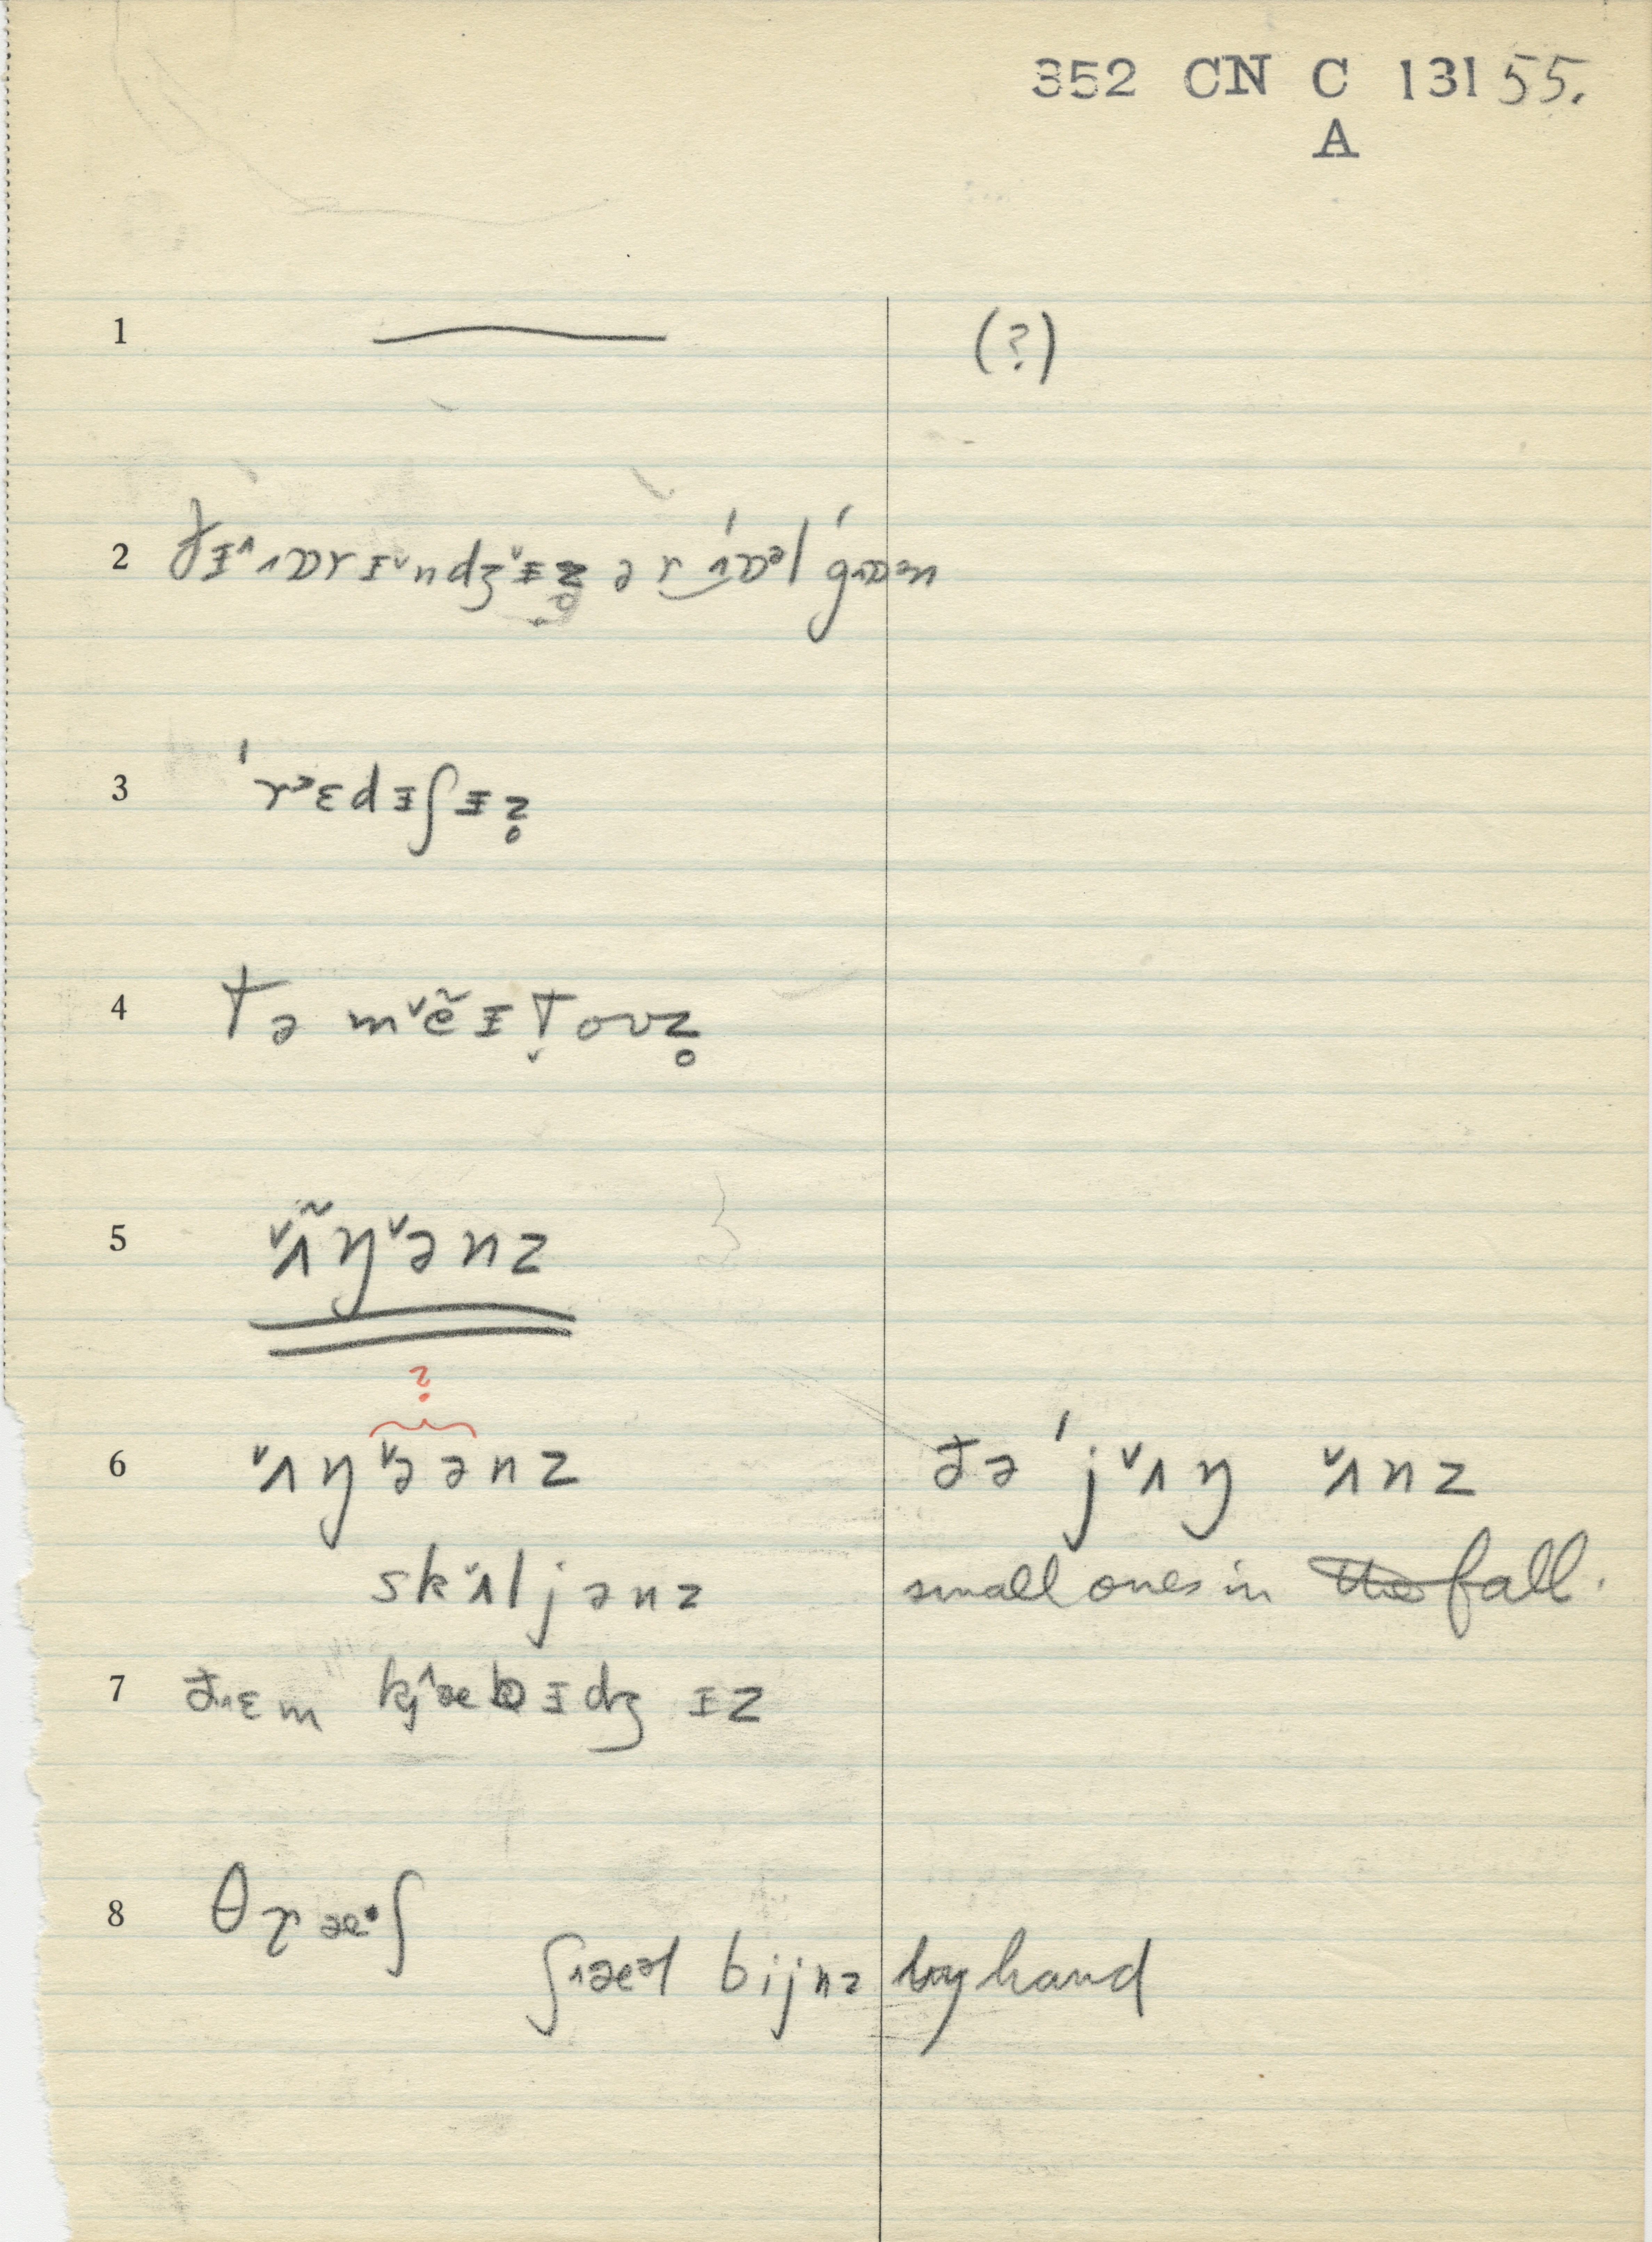 352 CN C 13155.
A
1 (?)
2 đɪ^ ʌɒrɪˇndʒˇɪz̥ ər ˈɒᵊl ˈgɒən
3 ˈrᵊɛdɪʃɪz̥
4 tə mˇẽɪt̬ouz̥
5 ˇʌ̃ŋˇənz
?
6 ˇʌŋˇəənz đə ˈjˇʌŋ ˇʌnz
skˇʌljənz small ones in the fall.
7 đʌɛm kj^æbɪdʒɪz
8 θræ·ʃ
ʃʌæᵊl bijnz by hand